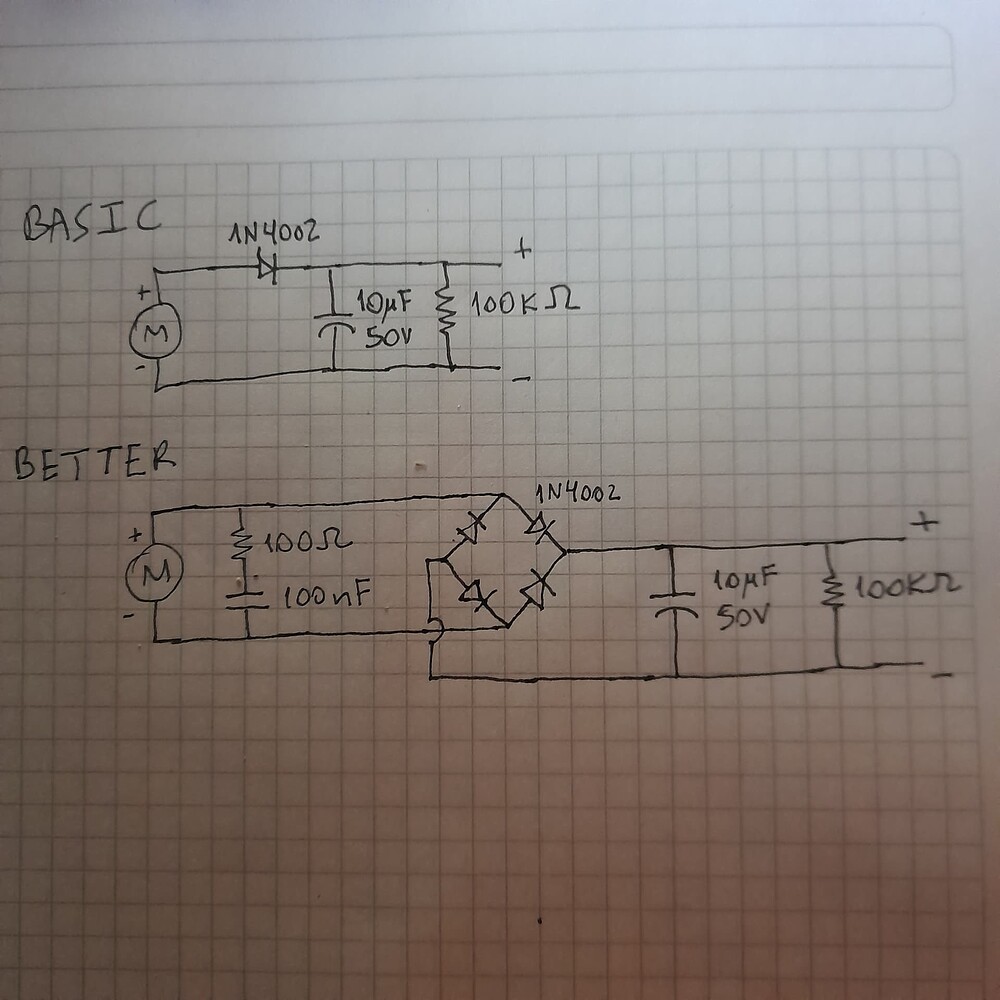 BASIC
1N4002
+
+
M
10µF
50V
100KΩ
-
-
BETTER
1N4002
+
+
M
100Ω
100nF
10µF
50V
100KΩ
-
-